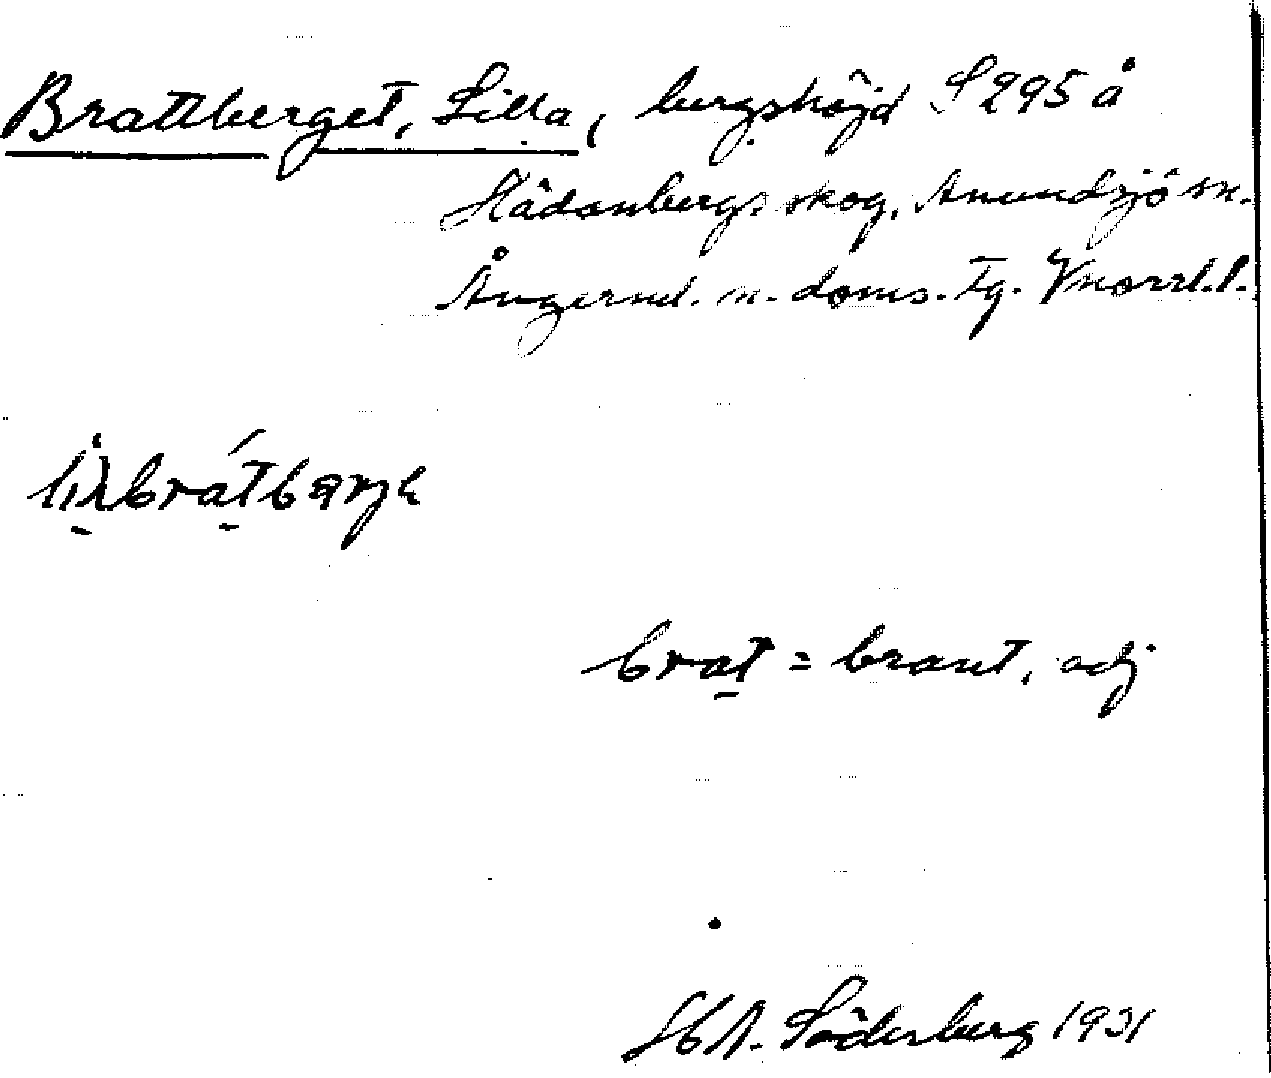 Brattberget, Lilla, bergshöjd S 295 å
Hädanbergs skog, Anundsjö sn.
Ångerml. n. doms. tg. Vnorrl. l.
brat = brant, adj
H A. Söderberg 1931